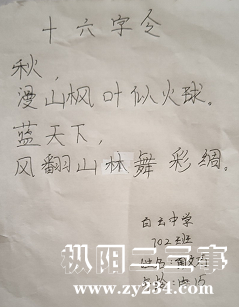 十六字令
秋，
漫山枫叶似火球。
蓝天下，
风翻山林舞彩绸。
白云中学
702班
姓名：
枞阳二三事
www.zy234.com